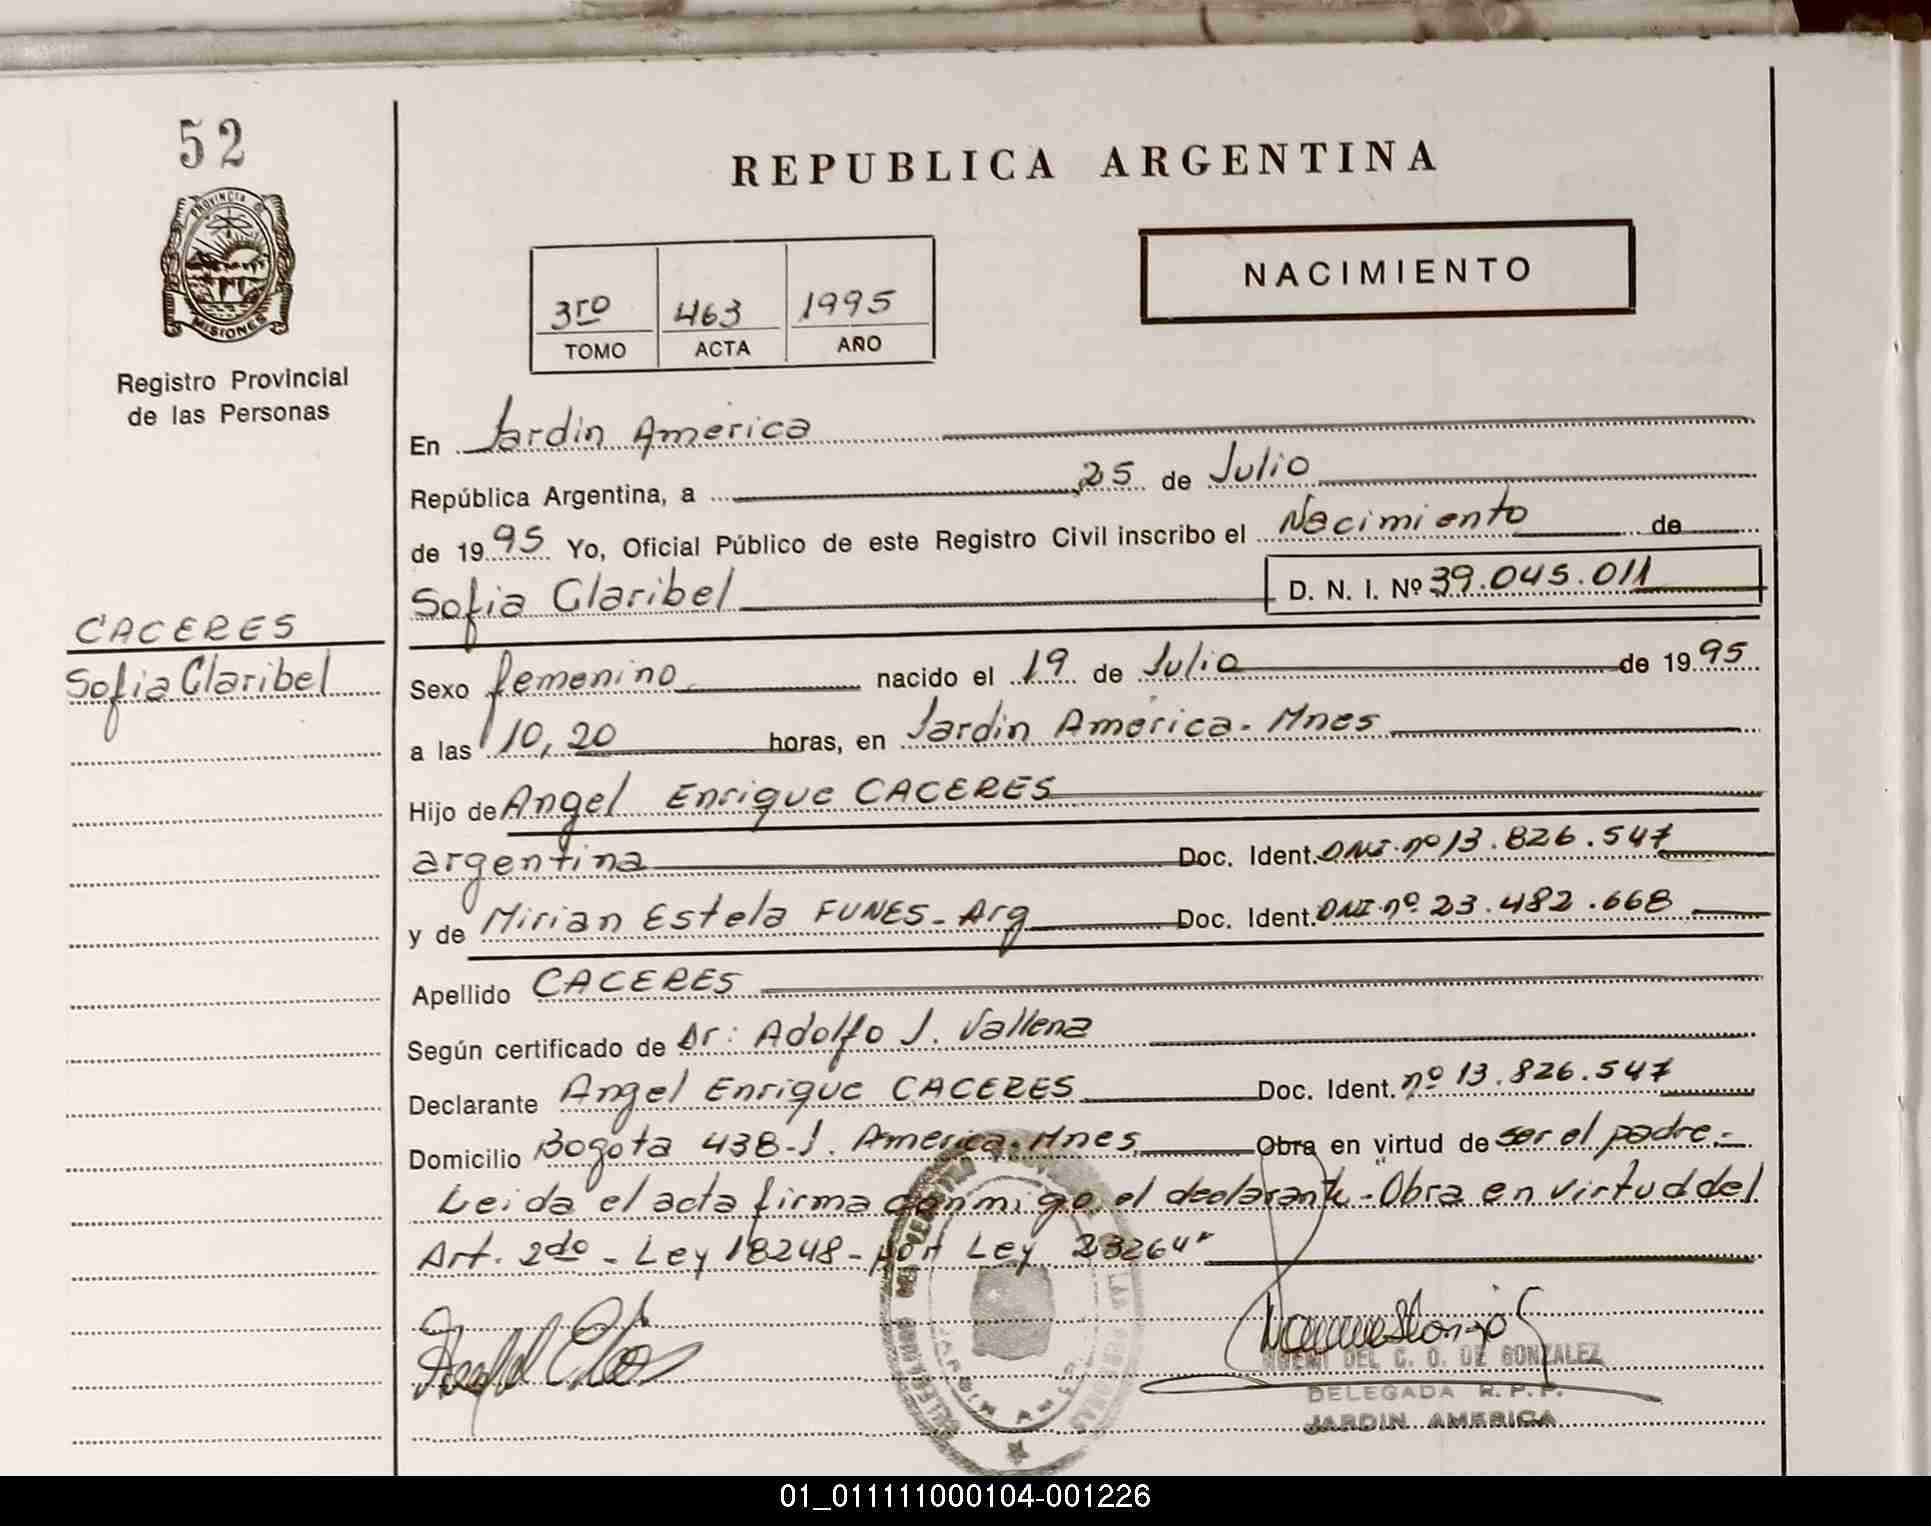 52
PROVINCIA DE
MISIONES
Registro Provincial
de las Personas
CACERES
Sofia Claribel
REPUBLICA ARGENTINA
NACIMIENTO
3ro 463 1995
TOMO ACTA AÑO
En Jardin America
República Argentina, a 25 de Julio
de 1995 Yo, Oficial Público de este Registro Civil inscribo el Nacimiento de
Sofia Claribel D. N. I. Nº 39.045.011
Sexo femenino nacido el 19 de Julio de 1995
a las 10,20 horas, en Jardin América. Mnes
Hijo de Angel Enrique CACERES
argentina Doc. Ident. DNI. nº 13.826.547
y de Mirian Estela FUNES - Arg Doc. Ident. DNI. nº 23.482.668
Apellido CACERES
Según certificado de Dr: Adolfo J. Vallena
Declarante Angel Enrique CACERES Doc. Ident. nº 13.826.547
Domicilio Bogota 438-J. America. Mnes Obra en virtud de ser el padre.-
Leida el acta firma conmigo el declarante - "Obra en virtud del
Art. 2do - Ley 18248 - por Ley 23264"
DEL C. O. DE GONZALEZ
DELEGADA R. P. P.
JARDIN AMERICA
01_011111000104-001226